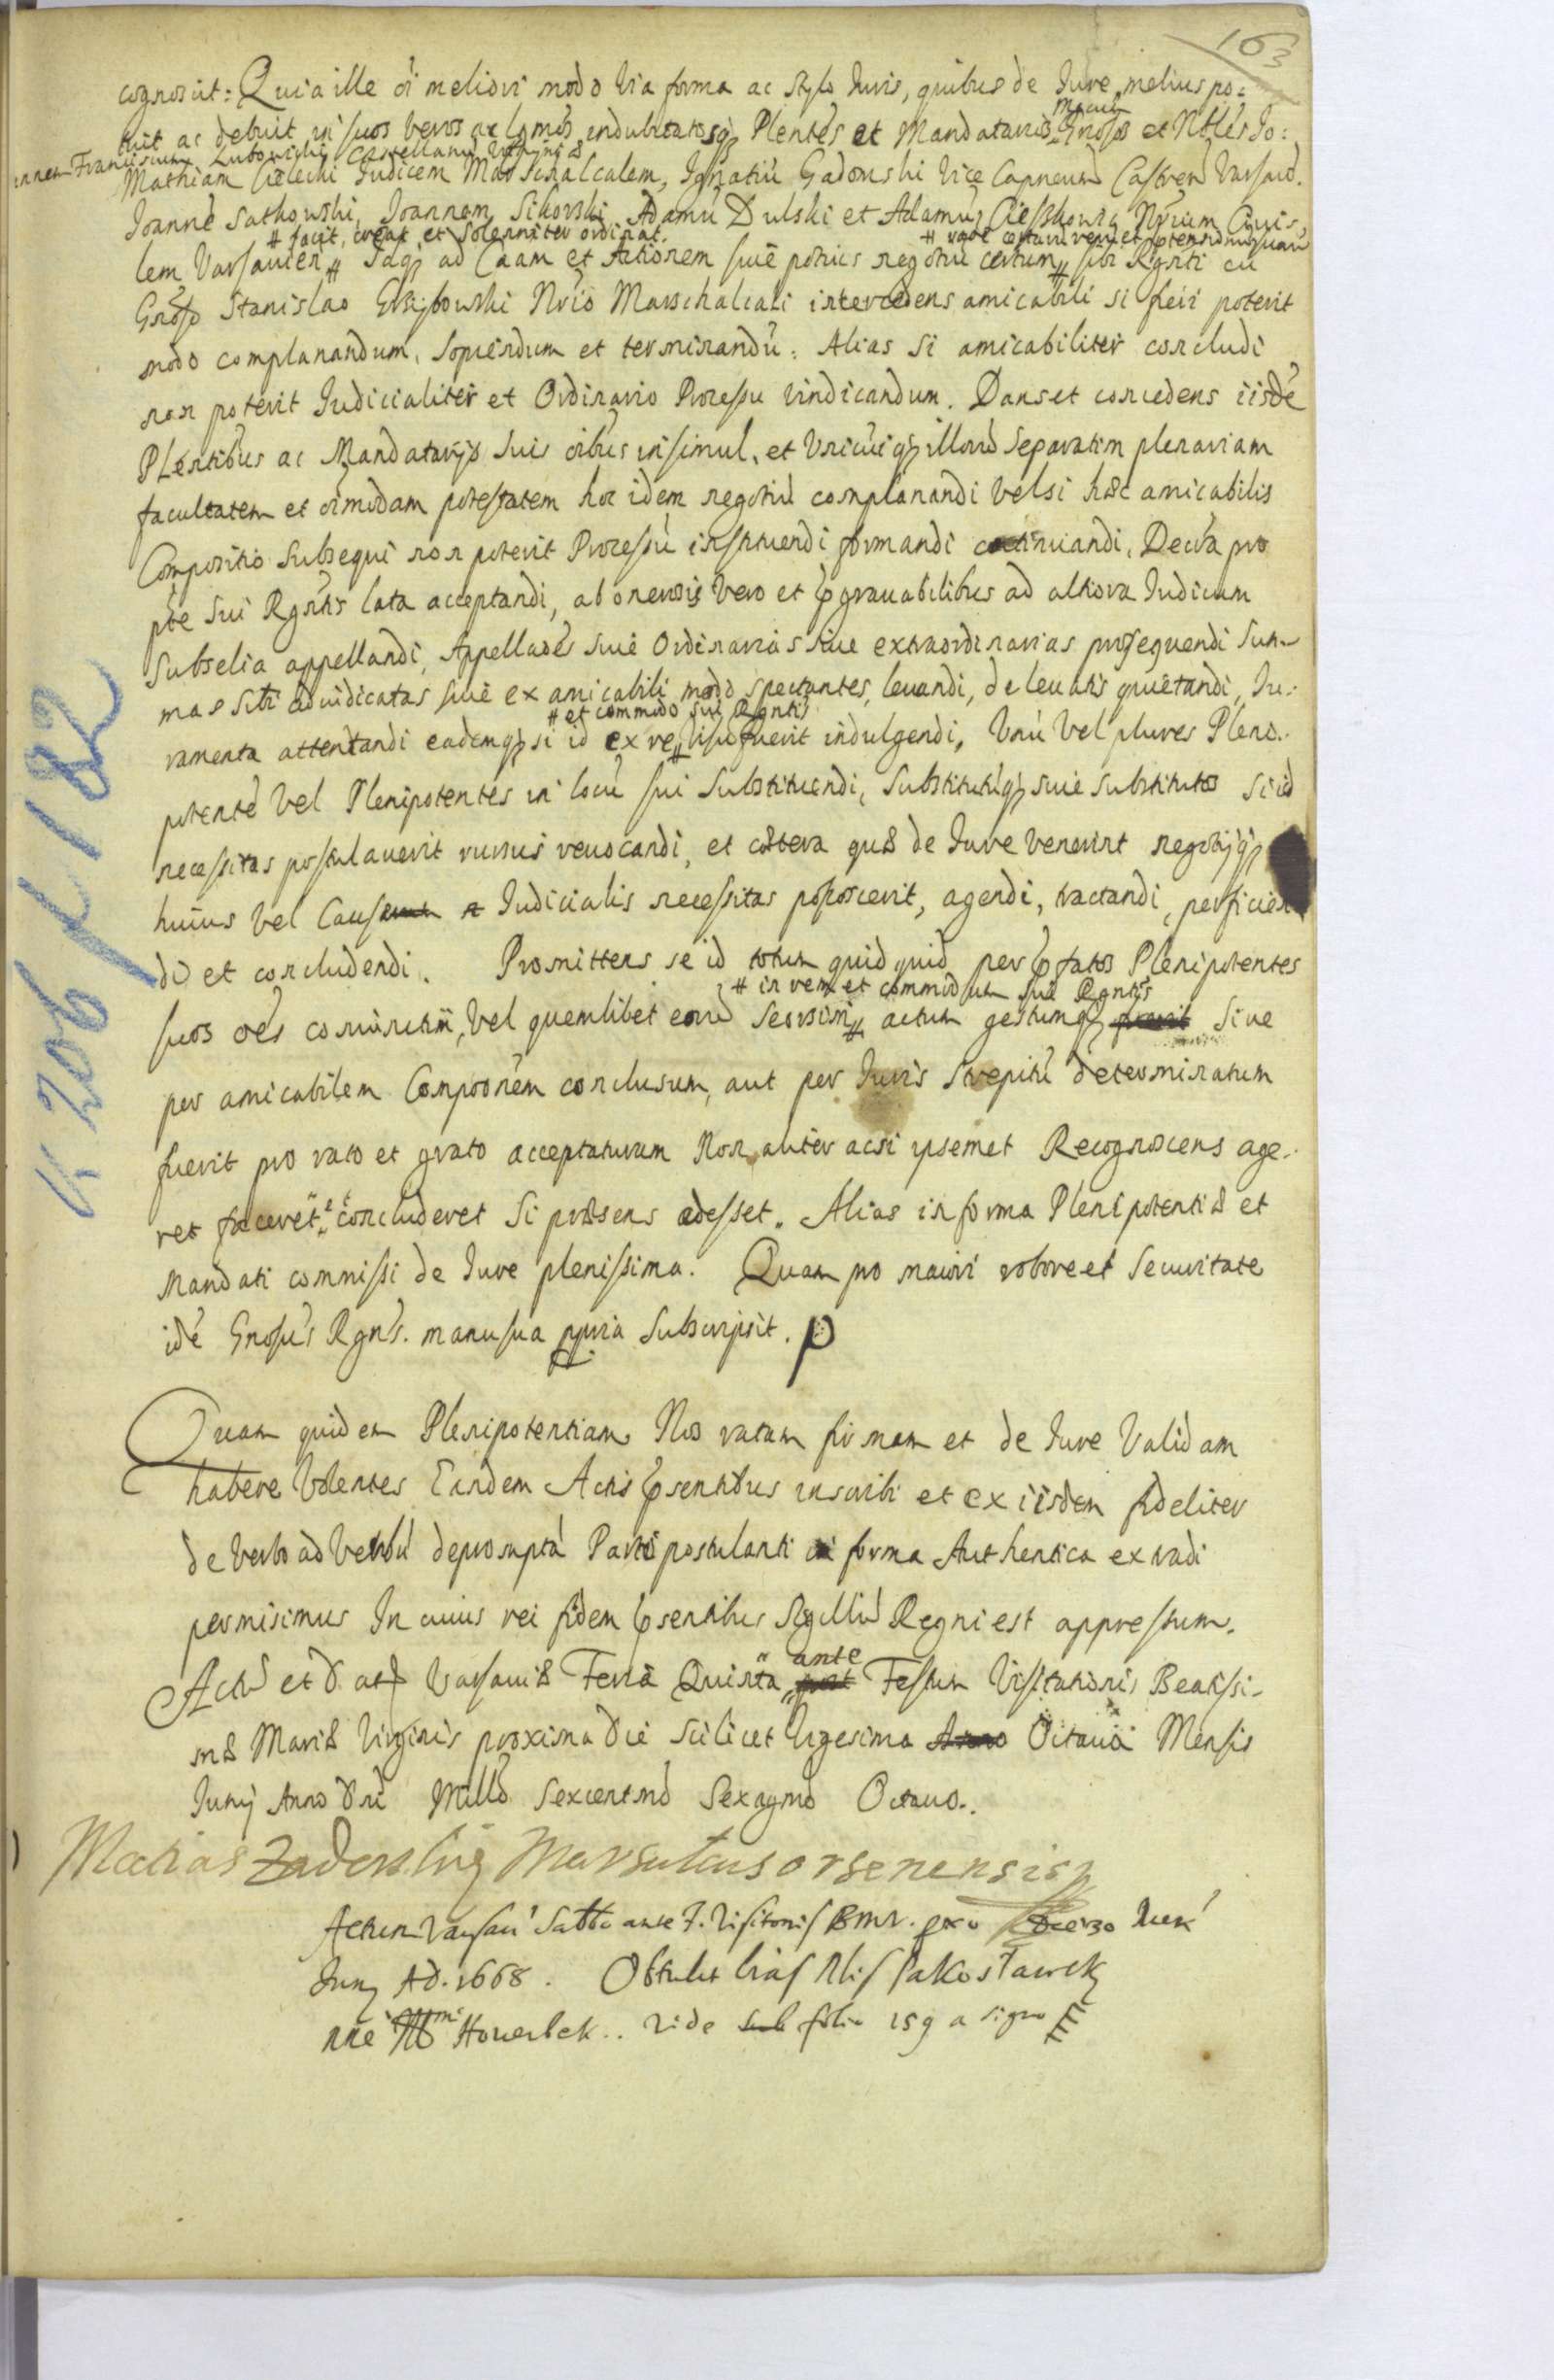 163
cognoscit: Quia ille oi meliori modo via forma ac stylo Iuris, quibus de Iure melius po=
tuit ac debuit in suos veros ac ltmos indubitatosq Plentes et Mandatarios Mgcum Gnosos et Nobles Jo:
annem Franciscum Lubowicki Castellanum
Mathiam Cielecki Iudicem Marschalcalem, Ignatiu Gadomski Vice Capneum Castren Varsavi.
Joanne Satkowski, Joannem Sikorski Adamu Dulski et Adamu Cieszkowski Nrium Civi-
# facit, creat et solenniter ordinat.
# rare certum
lem Varsavien # Idq ad Caam et Actionem sive potius negotiu certum # sibi Rgnti cu
Gnoso Stanislao Grzybowski Nrio Marschalcali intercedens amicabili si fieri poterit
modo complanandum, sopiendum et terminandu: Alias si amicabiliter concludi
non poterit Iudicialiter et Ordinario Processu vindicandum. Dans et concedens iisde
Plentibus ac Mandatarijs suis oibus insimul, et Unicuiq illoru separatim plenariam
facultatem et oimodam potestatem hoc idem negotiu complanandi vel si hæc amicabilis
Compositio subsequi non poterit Processu instituendi formandi continuandi, Decra pro
pte sui Rgntis lata acceptandi, ab onerosis vero et prgravabilibus ad altiora Iudicum
Subselia appellandi, Appellaoes sive Ordinarias sive extraordinarias prosequendi sum-
mas sibi adiudicatas sive ex amicabili modo spectantes, levandi, de levatis quietandi, Iu-
# et commodo sui Rgntis
ramenta attentandi eademq si id ex re # visu fuerit indulgendi, Unu vel plures Pleni-
potente vel Plenipotentes in locu sui substituendi, substitutuq sive substitutos si id
necessitas postulaverit rursus revocandi, et cætera quæ de Iure venerint negotijq
huius vel Causæ Iudicialis necessitas poposcerit, agendi, tractandi, perficien
di et concludendi. Promittens se id totum quidquid per prfatos Plenipotentes
# in rem et commodum sui Rgntis
suos oes coniunctim, vel quemlibet eoru seorsim # actum gestumq fuerit sive
per amicabilem Compoonem conclusum, aut per Iuris strepitu determinatum
fuerit pro rato et grato acceptaturum Non aliter acsi ipsemet Recognoscens age-
ret faceret et concluderet si præsens adesset. Alias in forma Plenipotentiæ et
Mandati commissi de Iure plenissima. Quam pro maiori robore et securitate
ide Gnosus Rgns. manu sua ppria subscripsit. p
Quam quidem Plenipotentiam Nos ratam firmam et de Iure Validam
habere Volentes Eandem Actis prsentibus inscribi et ex iisdem fideliter
de Verbo ad Verbu deprompta Parti postulanti in forma Authentica extradi
permisimus In cuius rei fidem prsentibus Sigillu Regni est appressum.
Actu et Dat Varsaviæ Feria Quinta post ante Festum Visitationis Beatissi-
mæ Mariæ Virginis proxima Die scilicet Vigesima Anno Octava Mensis
Iunij Anno Dni Millo Sexcentmo Sexagmo Octavo.
Actum Varsavi Sabbo ante F. Visitonis BMV. pxo die 30
Iunij Ad. 1668. Obtulit
Howerbek.. Vide sub folio 159 a signo
K 206 f 182